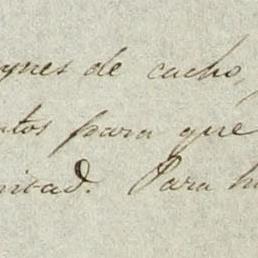 ynes de cacho,
ntos para que
nidad. Para h